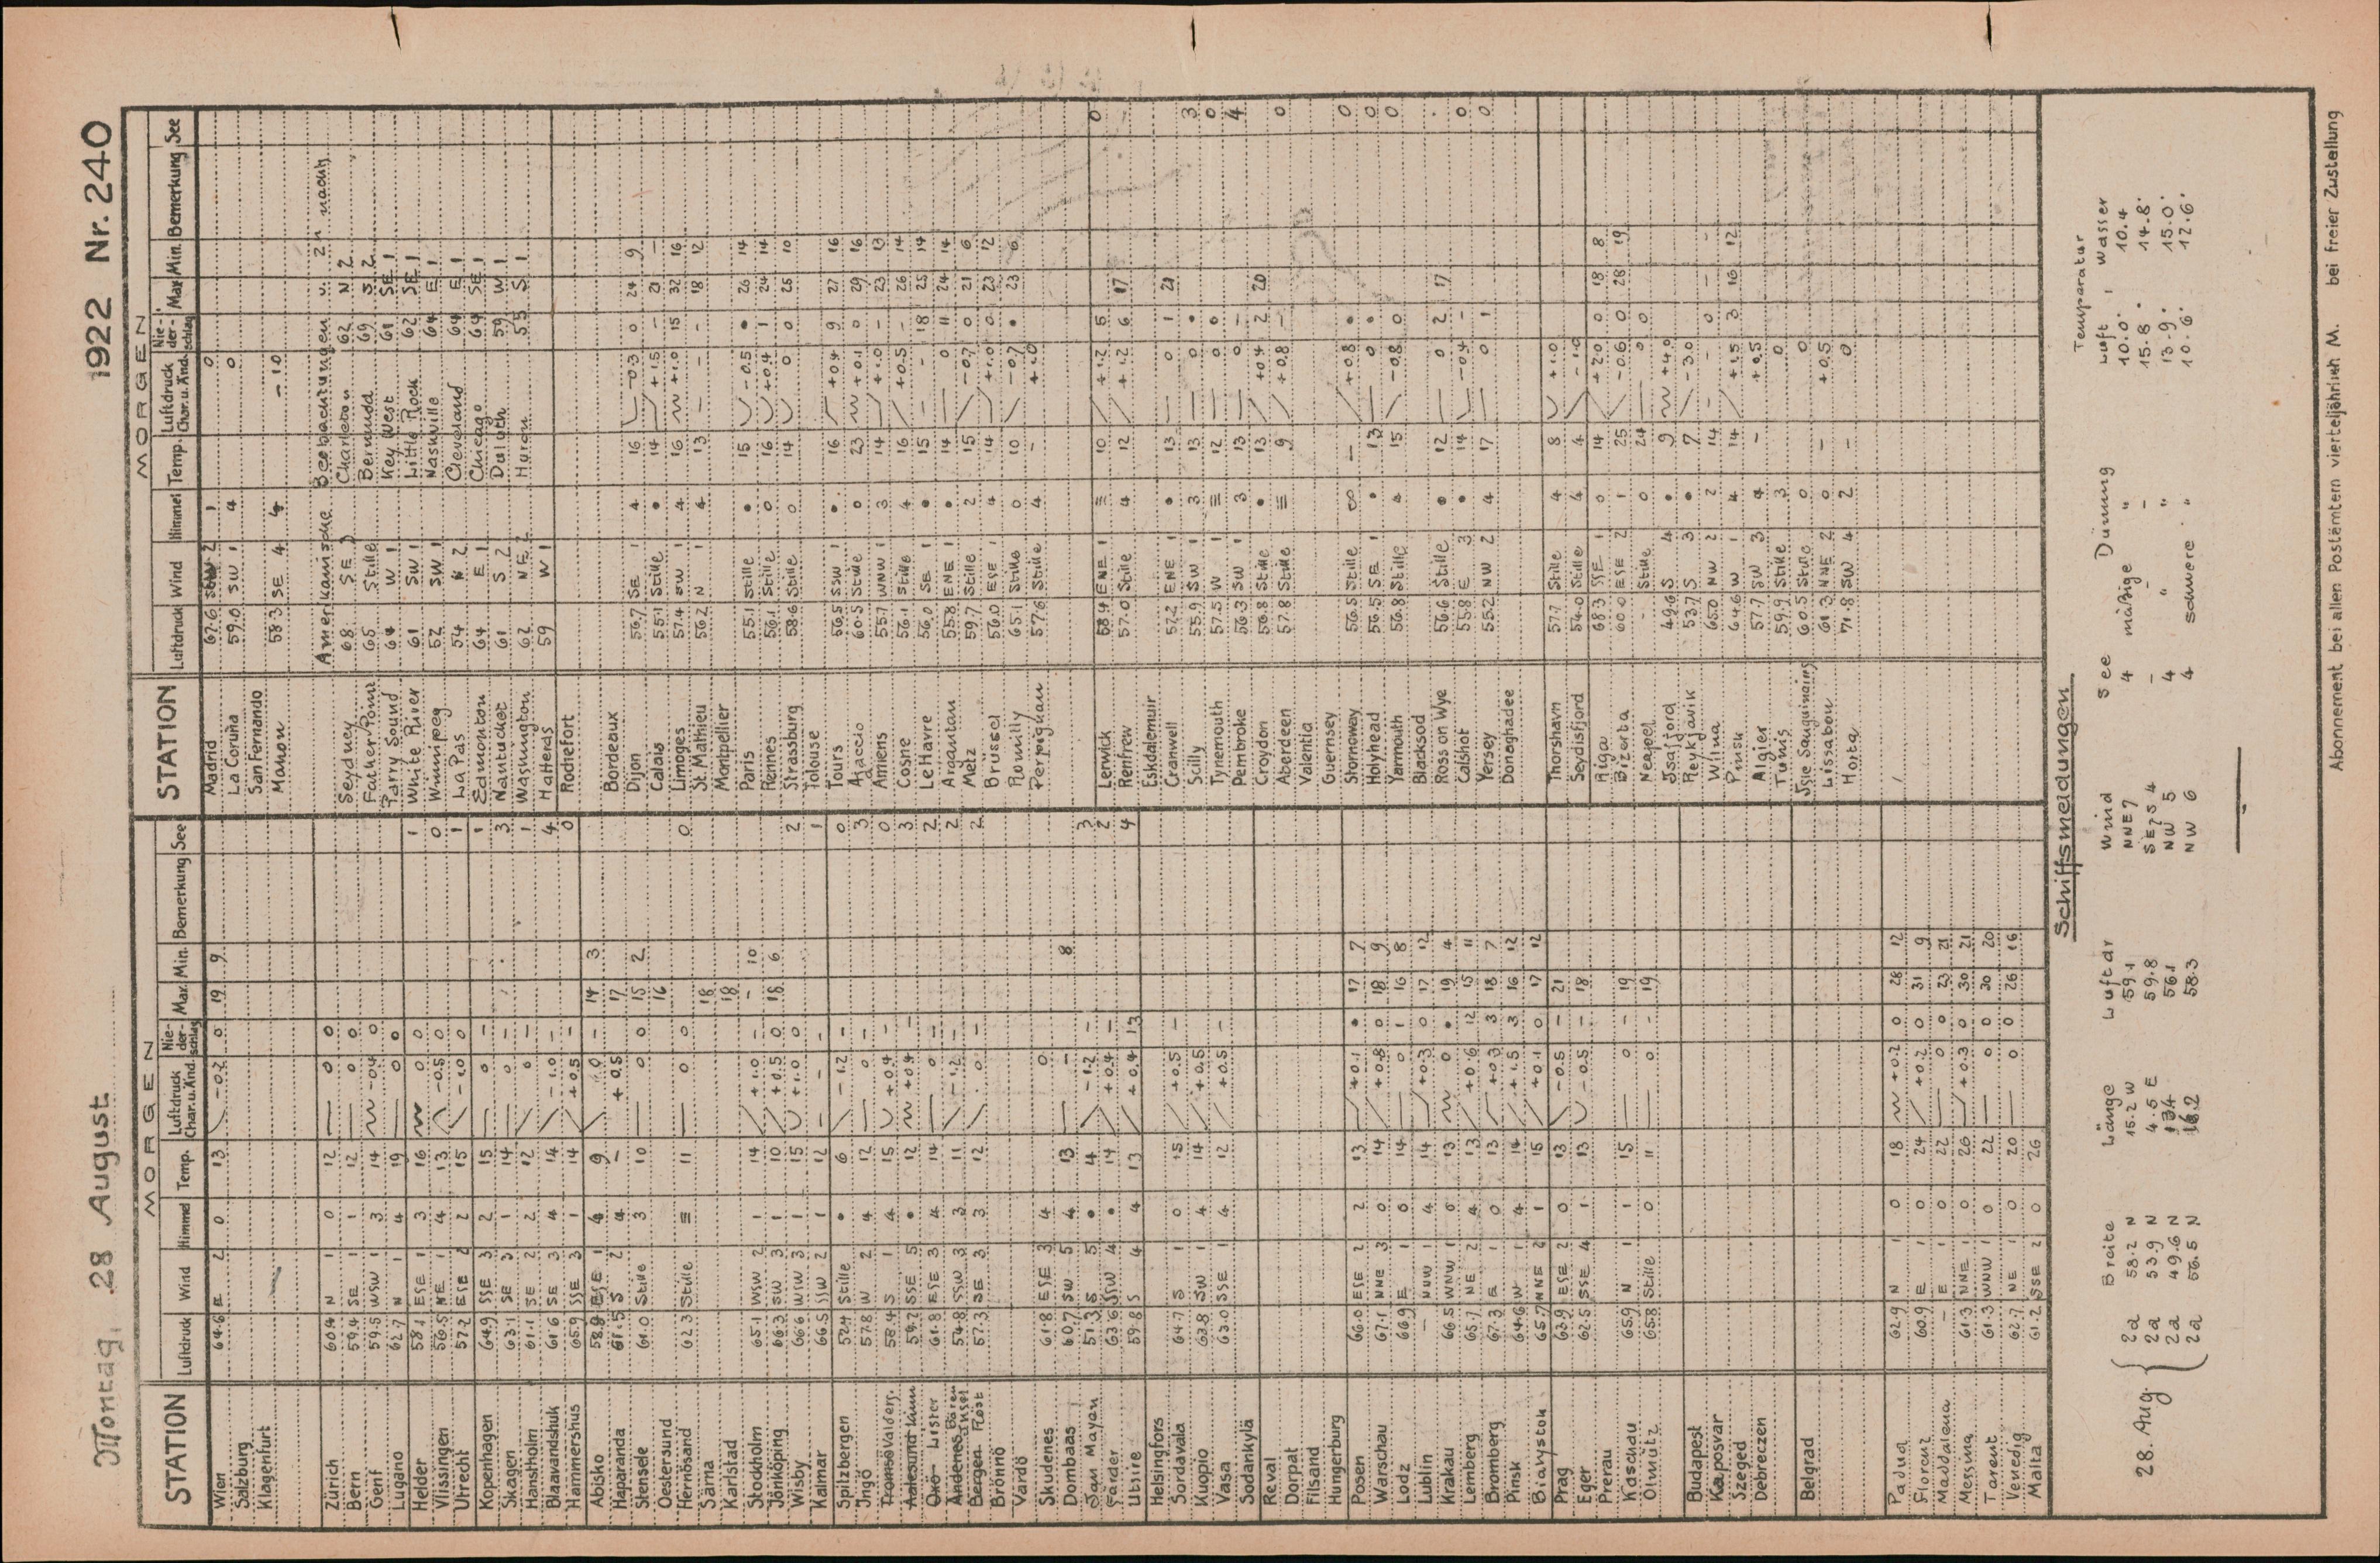 Montag, 28 August
1922 Nr. 240
MORGEN
STATION Luftdruck Wind Himmel Temp. Luftdruck Char. u. Änd. Nie-der-schlag Max. Min. Bemerkung See
Wien 64.6 E 2 0 13 -0.2 0 19 9
Salzburg
Klagenfurt
Zürich 60.4 N 1 0 12 0 0
Bern 59.4 SE 1 1 12 0 0
Genf 59.5 WSW 1 3 14 -0.4 0
Lugano 62.7 N 1 4 19 0 0
Helder 58.1 ESE 1 3 16 0 0 1
Vlissingen 56.5 NE 1 4 13 -0.5 0 0
Utrecht 57.2 ESE 2 2 15 -1.0 0 1
Kopenhagen 64.9 SSE 3 2 15 0 - 1
Skagen 63.1 SE 3 1 14 0 - 3
Hanstholm 61.1 SE 2 2 12 0 - 1
Blaavandshuk 61.6 SE 3 4 14 -1.0 - 4
Hammershus 65.9 SSE 3 1 14 +0.5 - 0
Abisko 58.9 ESE 1 4 9 0.0 - 14 3
Haparanda 61.5 S 2 4 - +0.5 17
Stensele 61.0 Stille 3 10 0 0 15 2
Oestersund 16
Hernösand 62.3 Stille ≡ 11 0 0 0
Särna 18
Karlstad 18
Stockholm 65.1 WSW 2 1 14 +1.0 - - 10
Jönköping 66.3 SW 3 1 10 +0.5 0 18 6
Wisby 66.6 WSW 3 1 15 +1.0 0 2
Kalmar 66.5 SSW 2 1 12 - - 1
Spitzbergen 52.4 Stille • 6 -1.2 - 0
Ingö 57.8 W 2 4 12 0 - 3
Tromsö Valders. 58.4 S 1 4 15 +0.4 - 0
Aalesund 59.2 SSE 5 • 12 +0.4 - 3
Oxö Lister 61.8 ESE 3 4 14 0 - 2
Andenes Bären insel 54.8 SSW 3 3 11 -1.2 - 2
Bergen Röst 57.3 SE 3 3 12 0 - 2
Brönnö
Vardö
Skudenes 61.8 ESE 3 4 0
Dombaas 60.7 SW 5 4 13 - 8
Jan Mayen 51.3 S 5 • 4 -1.2 - 3
Färder 63.6 SSW 4 • 14 +0.4 - 2
Utsire 59.8 S 4 4 13 +0.4 13 4
Helsingfors
Sordavala 64.7 S 1 0 15 +0.5 -
Kuopio 63.8 SW 1 4 14 +0.5
Vasa 63.0 SSE 1 4 12 +0.5 -
Sodankylä
Reval
Dorpat
Filsand
Hungerburg
Posen 66.0 ESE 2 2 13 +0.1 • 17 7
Warschau 67.1 NNE 3 0 14 +0.8 0 18 9
Lodz 66.9 E 1 0 14 0 1 16 8
Lublin - NNW 1 4 14 +0.3 0 17 12
Krakau 66.5 WNW 1 0 13 0 • 19 4
Lemberg 65.7 NE 2 4 13 +0.6 12 15 11
Bromberg 67.3 E 1 0 13 +0.3 3 18 7
Pinsk 64.6 W 1 4 14 +1.5 3 16 12
Bialystok 65.7 NNE 2 1 15 +0.1 0 17 12
Prag 63.9 ESE 2 0 13 -0.5 - 21
Eger 62.5 SSE 4 1 13 -0.5 - 18
Prerau
Kaschau 65.9 N 1 1 15 0 - 19
Olmütz 65.8 Stille 0 11 0 - 19
Budapest
Kaposvar
Szeged
Debreczen
Belgrad
Padua 62.9 N 1 0 18 +0.2 0 28 12
Florenz 60.9 E 1 0 24 +0.2 0 31 9
Maddalena - E 1 0 22 0 0 23 21
Messina 61.3 NNE 1 0 26 +0.3 0 30 21
Tarent 61.3 WNW 1 0 22 0 0 30 20
Venedig 62.7 NE 1 0 20 0 0 26 16
Malta 61.2 SSE 2 0 26
MORGEN
STATION Luftdruck Wind Himmel Temp. Luftdruck Char. u. Änd. Nie-der-schlag Max. Min. Bemerkung See
Madrid 67.6 SSW 2 1 0
La Coruña 59.0 SW 1 4 0
San Fernando
Mahon 58.3 SE 4 4 -1.0
Amerikanische Beobachtungen v. 2h nachts
Seydney 68 SE Charleston 62 N 2
Father Point 65 Stille Bermuda 69 S 2
Parry Sound 64 W 1 Key West 61 SE 1
White River 61 SW 1 Little Rock 62 SE 1
Winnipeg 52 SW 1 Nashville 64 E 1
La Pas 54 N 2 Cleveland 64 E 1
Edmonton 64 E 1 Chicago 64 SE 1
Nantucket 61 S 2 Duluth 59 W 1
Washington 62 NE 2 Huron 55 S 1
Hatteras 59 W 1
Rochefort
Bordeaux
Dijon 56.7 SE 1 4 16 -0.3 0 24 9
Calais 55.1 Stille • 14 +1.5 - 21 -
Limoges 57.4 SW 1 4 16 +1.0 15 32 16
St. Mathieu 56.2 N 1 4 13 - - 18 12
Montpellier
Paris 55.1 Stille • 15 -0.5 • 26 14
Rennes 56.1 Stille 0 16 +0.4 1 24 14
Strassburg 58.6 Stille 0 14 0 0 25 10
Tolouse
Tours 56.5 SSW 1 • 16 +0.4 9 27 16
Ajaccio 60.5 Stille 0 23 +0.1 0 29 16
Amiens 55.7 WNW 1 3 14 +1.0 - 23 13
Cosne 56.1 Stille 4 16 +0.5 - 26 14
Le Havre 56.0 SE 1 • 15 - 18 25 14
Argentan 55.8 ENE 1 • 14 0 11 24 14
Metz 59.7 Stille 2 15 -0.7 0 21 6
Brüssel 56.0 ESE 1 4 14 +1.0 0 23 12
Romilly 65.1 Stille 0 10 -0.7 • 23 6
Perpignan 57.6 Stille 4 - +2.0
Lerwick 58.4 ENE 1 ≡ 10 +1.2 5 0
Renfrew 57.0 Stille 4 12 +1.2 6 17
Eskdalemuir
Cranwell 57.2 ENE 1 • 13 0 1 21
Scilly 55.9 SW 1 3 13 0 • 3
Tynemouth 57.5 W 1 ≡ 12 0 • 0
Pembroke 56.3 SW 1 3 13 0 - 4
Croydon 56.8 Stille • 13 +0.4 2 20
Aberdeen 57.8 Stille ≡ 9 +0.8 - 0
Valentia
Guernsey
Stornoway 56.5 Stille ∞ - +0.8 • 0
Holyhead 56.5 SE 1 • 13 0 • 0
Yarmouth 56.8 Stille 4 15 -0.8 0 0
Blacksod
Ross on Wye 56.6 Stille • 12 0 2 17
Calshot 55.8 E 3 • 14 -0.4 - 0
Yersey 55.2 NW 2 4 17 0 1 0
Donaghadee
Thorshavn 57.7 Stille 4 8 +1.0
Seydisfjord 54.0 Stille 4 4 -1.0
Riga 68.3 SSE 1 0 14 +2.0 0 18 8
Bizerta 60.0 ESE 2 1 25 -0.6 0 28 19
Neapel - Stille 0 24 0 0
Isafjord 49.6 S 4 • 9 +4.0
Reykjavik 53.7 S 3 • 7 -3.0
Wilna 65.0 NW 2 2 14 - 0 - -
Pinsk 64.6 W 1 4 14 +1.5 3 16 12
Algier 57.7 SW 3 4 - +0.5
Tunis 59.9 Stille 3 0
Isle Sanguinaires 60.5 Stille 0 0
Lissabon 61.3 NNE 2 0 - +0.5
Horta 71.8 SW 4 2 - 0
Schiffsmeldungen
Breite Länge Luftdr Wind See Dünung Temperatur
Luft Wasser
28. Aug. 2a 58.2 N 15.2 W 59.1 NNE 7 4 mäßige " 10.0° 10.4
2a 53.9 N 4.5 E 59.8 SE 7 S 4 - " - 15.8° 14.8°
2a 49.6 N 13.4 56.1 NW 5 4 " 13.9° 15.0°
2a 56.5 N 16.2 58.3 NW 6 4 schwere " 10.6° 12.6°
Abonnement bei allen Postämtern vierteljährlich M. bei freier Zustellung